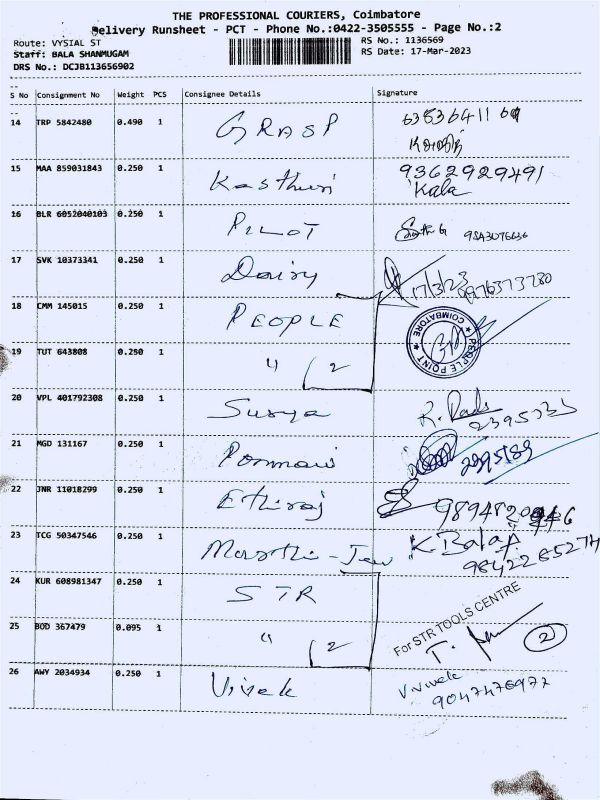 THE PROFESSIONAL COURIERS, Coimbatore
Delivery Runsheet - PCT - Phone No.:0422-3505555 - Page No.:2
Route: VYSIAL ST
RS No.: 1136569
Staff: BALA SHANMUGAM
RS Date: 17-Mar-2023
DRS No.: DCJB113656902
S No Consignment No Weight PCS Consignee Details Signature
14 TRP 5842480 0.490 1 GRASP
15 MAA 859031843 0.250 1 Kasthuri 9362929491
Kala
16 BLR 6052040103 0.250 1 PILOT
17 SVK 10373341 0.250 1 Daisy 17/3/23
18 CMM 145015 0.250 1 PEOPLE
COIMBATORE PEOPLE POINT
19 TUT 643808 0.250 1 " 2
20 VPL 401792308 0.250 1 Surya R.
21 MGD 131167 0.250 1 Ponmani
22 JNR 11018299 0.250 1 Ethiraj
23 TCG 50347546 0.250 1 K Balaji
9842285274
24 KUR 608981347 0.250 1 STR
For STR TOOLS CENTRE
25 BOD 367479 0.095 1 " 2 T. 2
26 AWY 2034934 0.250 1 Vivek V. Vivek
9047476977